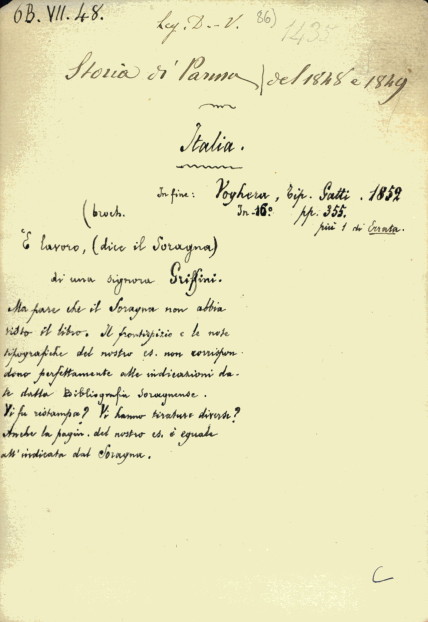 6B. VII. 48.
Leg. D. - V. 86)
1435
Storia di Parma / del 1848 e 1849
Italia.
In fine: Voghera, Tip. Gatti. 1852
(broch. In-16° pp. 355.
più 1 di Errata.
È lavoro, (dice il Soragna)
di una signora Griffini.
Ma pare che il Soragna non abbia
visto il libro. Il frontispizio e le note
tipografiche del nostro es. non corrispon-
dono perfettamente alle indicazioni da-
te dalla Bibliografia Soragnense.
Vi fu ristampa? Vi hanno tirature diverse?
Anche la pagin. del nostro es. è eguale
all'indicata dal Soragna.
C